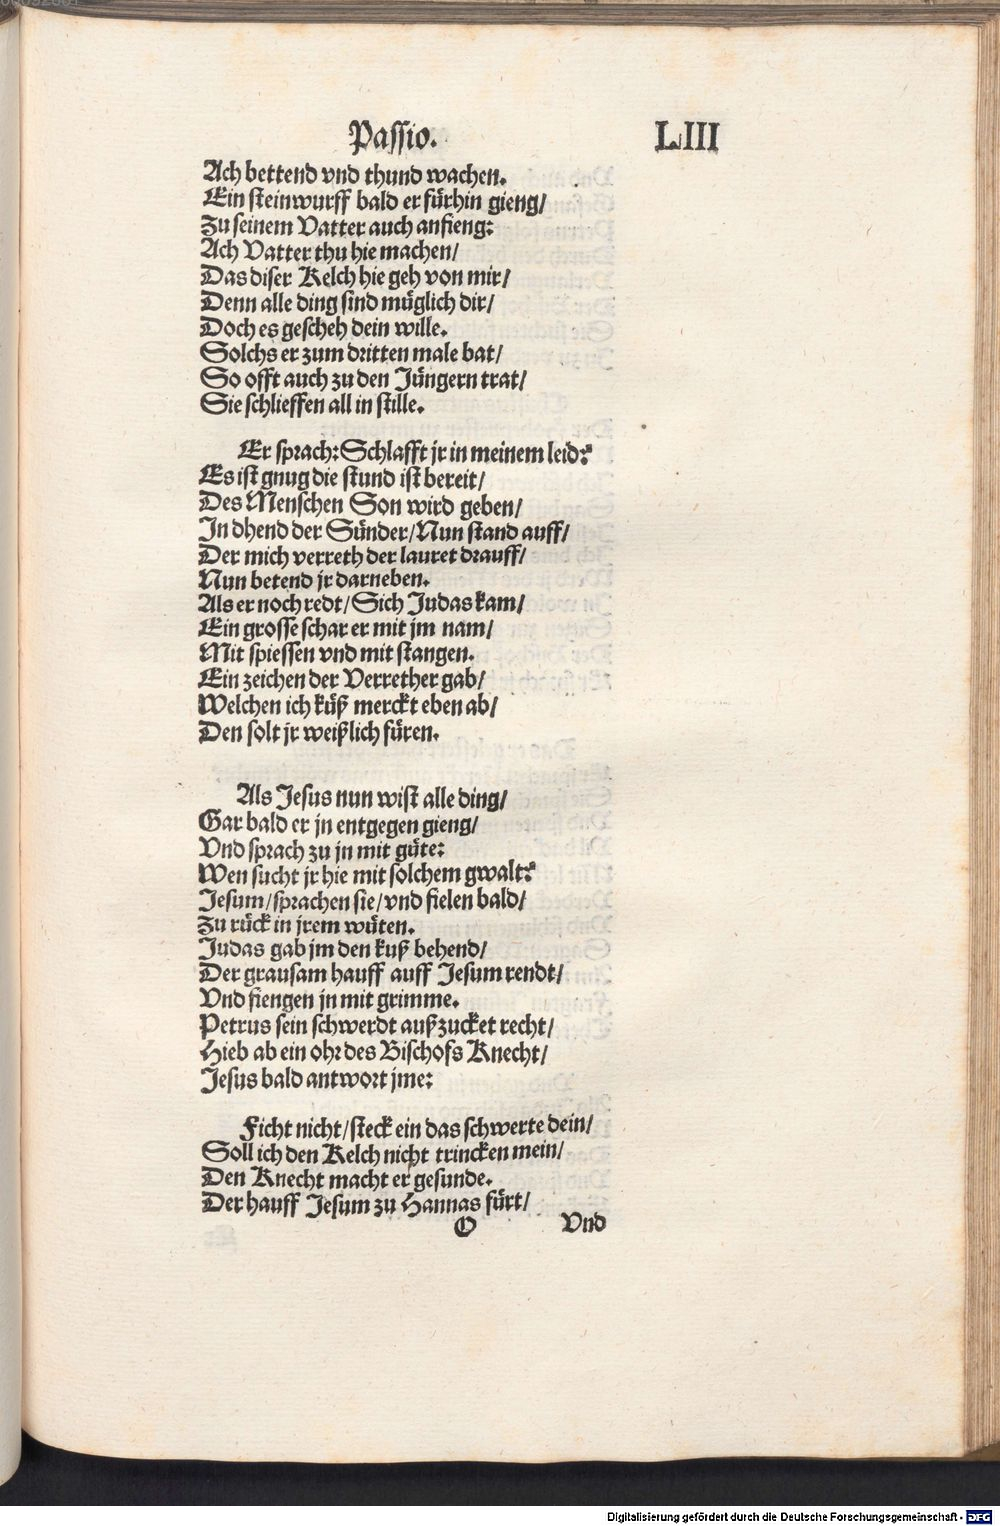 Passio. LIII
Ach bettend vnd thund wachen.
Ein steinwurff bald er fürhin gieng/
Zu seinem Vatter auch anfieng:
Ach Vatter thu hie machen/
Das diser Kelch hie geh von mir/
Denn alle ding sind müglich dir/
Doch es gescheh dein wille.
Solchs er zum dritten male bat/
So offt auch zu den Jüngern trat/
Sie schlieffen all in stille.
Er sprach: Schlafft jr in meinem leid?
Es ist gnug die stund ist bereit/
Des Menschen Son wird geben/
In dhend der Sünder/Nun stand auff/
Der mich verreth der lauret drauff/
Nun betend jr darneben.
Als er noch redt/Sich Judas kam/
Ein grosse schar er mit jm nam/
Mit spiessen vnd mit stangen.
Ein zeichen der Verrether gab/
Welchen ich küß merckt eben ab/
Den solt jr weißlich füren.
Als Jesus nun wist alle ding/
Gar bald er jn entgegen gieng/
Vnd sprach zu jn mit güte:
Wen sucht jr hie mit solchem gwalt?
Jesum/sprachen sie/vnd fielen bald/
Zu rück in jrem wüten.
Judas gab jm den kuß behend/
Der grausam hauff auff Jesum rendt/
Vnd fiengen jn mit grimme.
Petrus sein schwerdt außzucket recht/
Hieb ab ein ohr des Bischofs Knecht/
Jesus bald antwort jme:
Ficht nicht/steck ein das schwerte dein/
Soll ich den Kelch nicht trincken mein/
Den Knecht macht er gesunde.
Der hauff Jesum zu Hannas fürt/
O Vnd
Digitalisierung gefördert durch die Deutsche Forschungsgemeinschaft - DFG